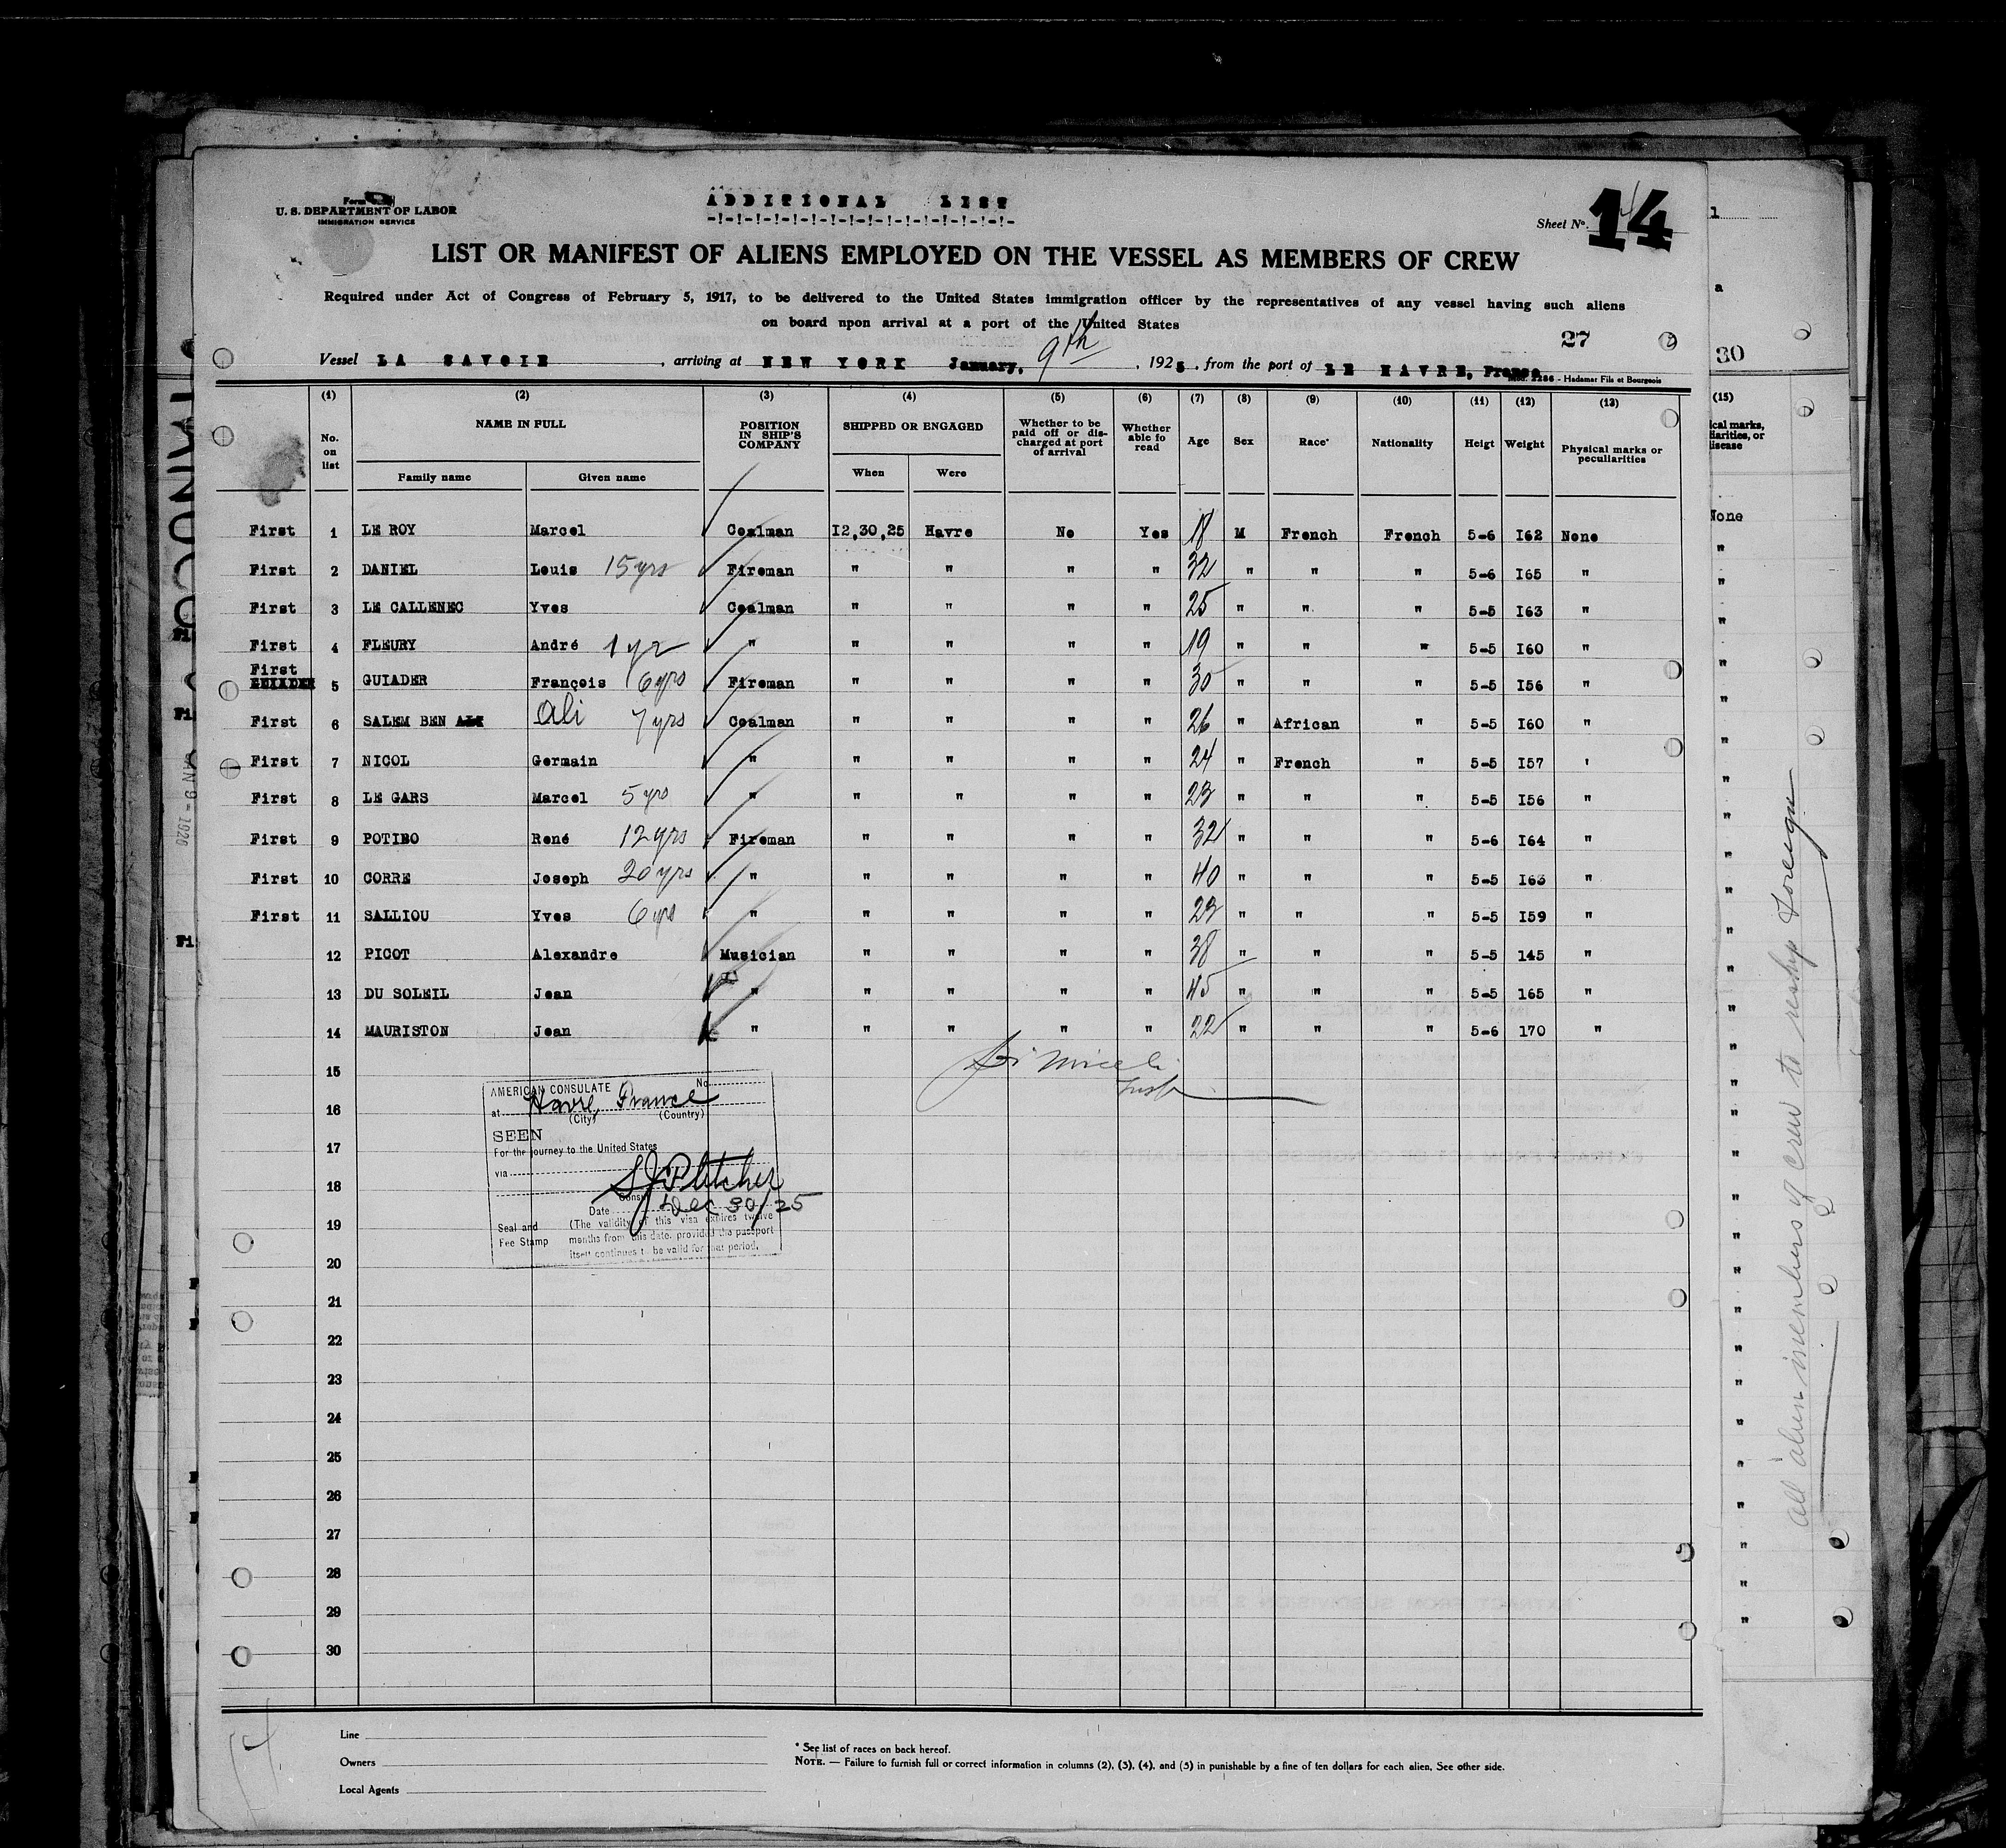 ADDITIONAL LIST
-!-!-!-!-!-!-!-!-!-!-!-!-!-!-!-!-!-
Form
U. S. DEPARTMENT OF LABOR
IMMIGRATION SERVICE
Sheet No. 14
LIST OR MANIFEST OF ALIENS EMPLOYED ON THE VESSEL AS MEMBERS OF CREW
Required under Act of Congress of February 5, 1917, to be delivered to the United States immigration officer by the representatives of any vessel having such aliens
on board npon arrival at a port of the United States
27
Vessel LA SAVOIE, arriving at NEW YORK January, 9th, 192, from the port of LE HAVRE, France
Mod. 2286 - Hadamar Fils et Bourgeois
(1) (2) (3) (4) (5) (6) (7) (8) (9) (10) (11) (12) (13)
No. on list NAME IN FULL POSITION IN SHIP'S COMPANY SHIPPED OR ENGAGED Whether to be paid off or discharged at port of arrival Whether able fo read Age Sex Race* Nationality Heigt Weight Physical marks or peculiarities
Family name Given name When Were
First 1 LE ROY Marcel Coalman I2,30,25 Havre No Yes 18 M French French 5-6 I62 None
First 2 DANIEL Louis 15 yrs Fireman " " " " 32 " " " 5-6 I65 "
First 3 LE CALLENEC Yves Coalman " " " " 25 " " " 5-5 I63 "
First 4 FLEURY André 1 yr " " " " " 19 " " " 5-5 I60 "
First 5 GUIADER François 6 yrs Fireman " " " " 30 " " " 5-5 I56 "
First 6 SALEM BEN Ali 7 yrs Coalman " " " " 26 " African " 5-5 I60 "
First 7 NICOL Germain " " " " " 24 " French " 5-5 I57 '
First 8 LE GARS Marcel 5 yrs " " " " " 23 " " " 5-5 I56 "
First 9 POTIBO René 12 yrs Fireman " " " " 32 " " " 5-6 I64 "
First 10 CORRE Joseph 20 yrs " " " " " 40 " " " 5-5 I63 "
First 11 SALLIOU Yves 6 yrs " " " " " 23 " " " 5-5 I59 "
12 PICOT Alexandre Musician " " " " 38 " " " 5-5 145 "
13 DU SOLEIL Jean " " " " " 45 " " " 5-5 165 "
14 MAURISTON Jean " " " " " 22 " " " 5-6 170 "
15
16
17
18
19
20
21
22
23
24
25
26
27
28
29
30
AMERICAN CONSULATE No.
at Havre, France
(City) (Country)
SEEN
For the journey to the United States
via
Consul
Date Dec 30/25
Seal and Fee Stamp
(The validity of this visa expires twelve
months from this date, provided the passport
itself continues to be valid for that period.
Line
Owners
Local Agents
* See list of races on back hereof.
NOTE. — Failure to furnish full or correct information in columns (2), (3), (4), and (5) in punishable by a fine of ten dollars for each alien. See other side.
1
a
30
(15)
None
All alien members of crew to reship Foreign